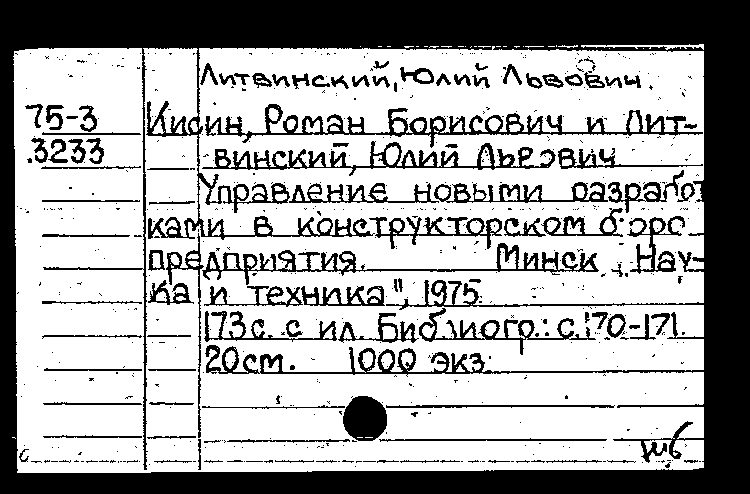 Литвинский, Юлий Львович.
75-3 Кисин, Роман Борисович и Лит-
.3233 винский, Юлий Львович
Управление новыми разработ
ками в конструкторском бюро
предприятия. Минск, "Нау-
ка и техника", 1975
173с. с ил. Библиогр.: с.170-171.
20см. 1000 экз.